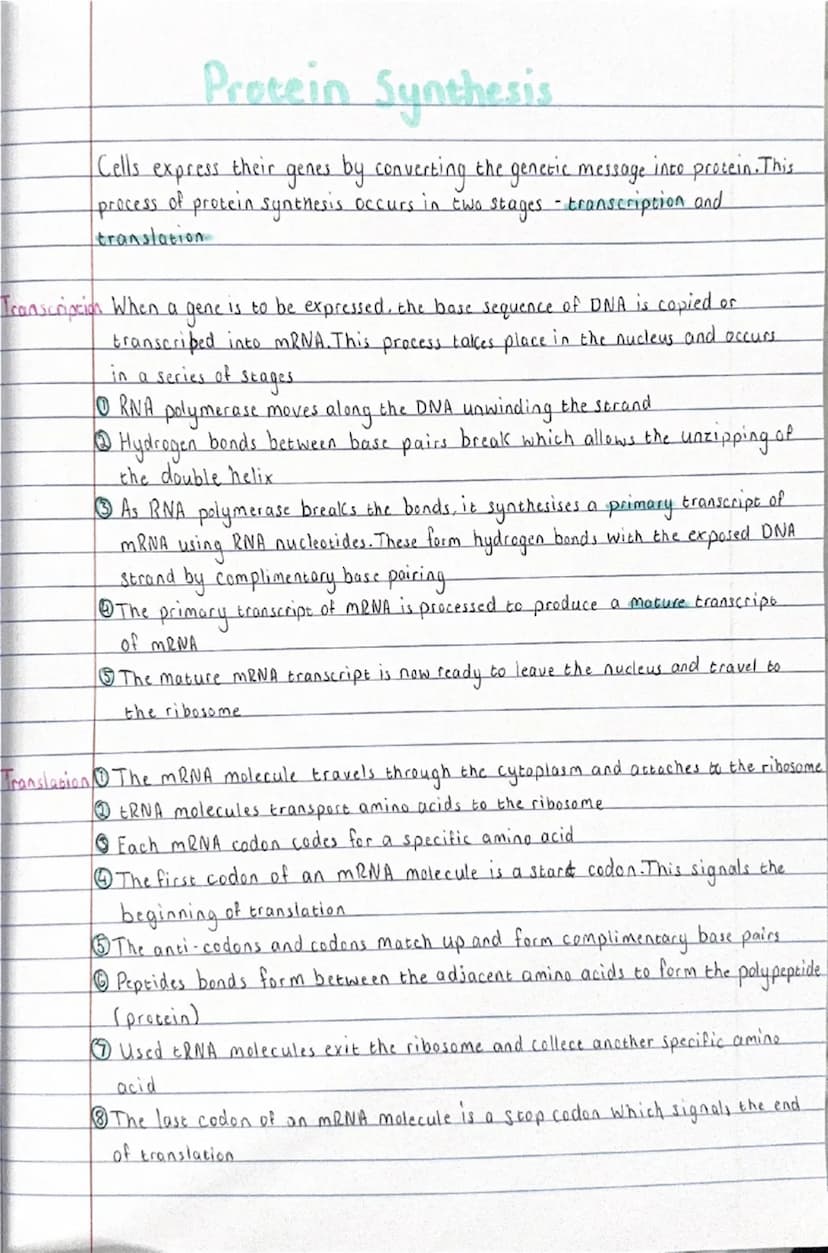 Protein Synthesis
Cells express their genes by converting the genetic message into protein. This
process of protein synthesis occurs in two stages - transcription and
translation
Transcription When a gene is to be expressed, the base sequence of DNA is copied or
transcribed into mRNA. This process takes place in the nucleus and occurs
in a series of stages
① RNA polymerase moves along the DNA unwinding the strand
② Hydrogen bonds between base pairs break which allows the unzipping of
the double helix
③ As RNA polymerase breaks the bonds, it synthesises a primary transcript of
mRNA using RNA nucleotides. These form hydrogen bonds with the exposed DNA
strand by complimentary base pairing
④ The primary transcript of mRNA is processed to produce a mature transcript
of mRNA
⑤ The mature mRNA transcript is now ready to leave the nucleus and travel to
the ribosome
Translation ① The mRNA molecule travels through the cytoplasm and attaches to the ribosome
② tRNA molecules transport amino acids to the ribosome
③ Each mRNA codon codes for a specific amino acid
④ The first codon of an mRNA molecule is a start codon. This signals the
beginning of translation
⑤ The anti-codons and codons match up and form complimentary base pairs
⑥ Peptides bonds form between the adjacent amino acids to form the polypeptide
(protein)
⑦ Used tRNA molecules exit the ribosome and collect another specific amino
acid
⑧ The last codon of an mRNA molecule is a stop codon which signals the end
of translation